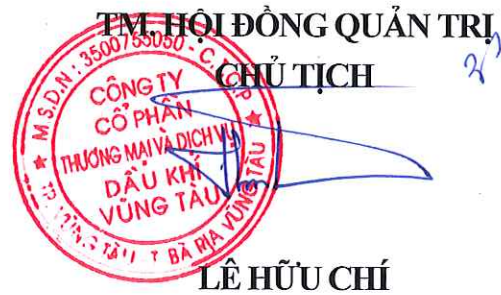 TM. HỘI ĐỒNG QUẢN TRỊ
CHỦ TỊCH
M.S.D.N: 3500755050 - C.T.C.P
CÔNG TY
CỔ PHẦN
THƯƠNG MẠI VÀ DỊCH VỤ
DẦU KHÍ
VŨNG TÀU
TP. VŨNG TÀU - T. BÀ RỊA VŨNG TÀU
LÊ HỮU CHÍ